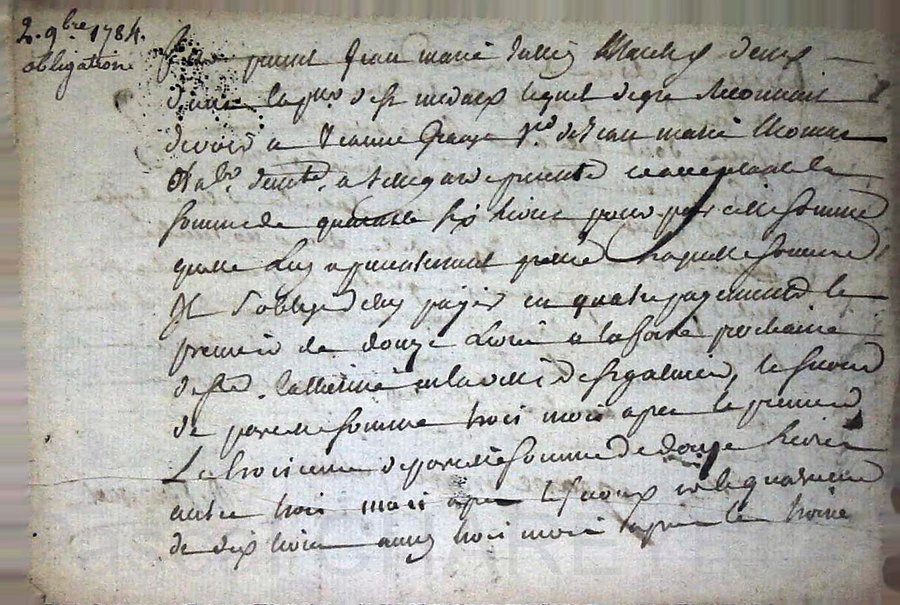 2. 9bre 1784.
obligation
present Jean marie
de st medard lequel de gré Reconnait
devoir a Jeanne Grange de Jean marie thomas
presente et acceptante la
somme de quarante six livres pour pareille somme
quelle Luy a presentement presté laquelle somme
Il s'oblige de luy payer en quatre payements le
premier de douze Livres a la foire prochaine
de ste. Catherine en la ville de st galmier, le second
de pareille somme trois mois apres le premier
Le troisieme de pareille somme de douze livres
autre trois mois apres le second et le quatrieme
de dix livres aussy trois mois apres le